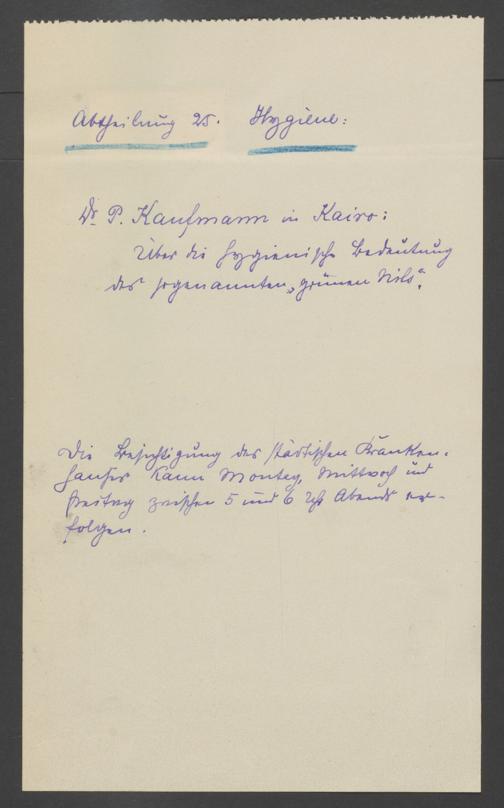 Abtheilung 25. Hygiene:
Dr. P. Kaufmann in Kairo:
Über die hygienische Bedeutung
des sogenannten „grünen Nils“.
Die Besichtigung des städtischen Kranken-
hauses kann Montag, Mittwoch und
Freitag zwischen 5 und 6 Uhr Abends er-
folgen.